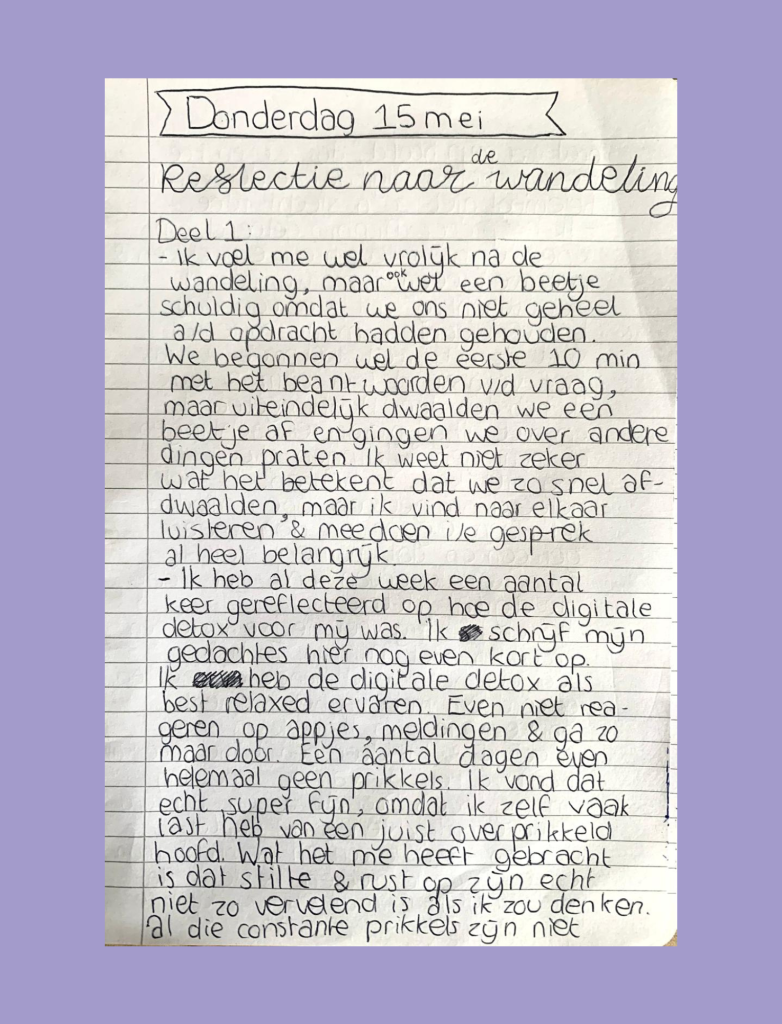 Donderdag 15 mei
Reflectie naar de wandeling
Deel 1:
- Ik voel me wel vrolijk na de
wandeling, maar ook wel een beetje
schuldig omdat we ons niet geheel
a/d opdracht hadden gehouden.
We begonnen wel de eerste 10 min
met het beantwoorden v/d vraag,
maar uiteindelijk dwaalden we een
beetje af en gingen we over andere
dingen praten. Ik weet niet zeker
wat het betekent dat we zo snel af-
dwaalden, maar ik vind naar elkaar
luisteren & meedoen i/e gesprek
al heel belangrijk.
- Ik heb al deze week een aantal
keer gereflecteerd op hoe de digitale
detox voor mij was. Ik schrijf mijn
gedachtes hier nog even kort op.
Ik heb de digitale detox als
best relaxed ervaren. Even niet rea-
geren op appjes, meldingen & ga zo
maar door. Een aantal dagen even
helemaal geen prikkels. Ik vond dat
echt super fijn, omdat ik zelf vaak
last heb van een juist overprikkeld
hoofd. Wat het me heeft gebracht
is dat stilte & rust op zijn echt
niet zo vervelend is als ik zou denken.
Al die constante prikkels zijn niet